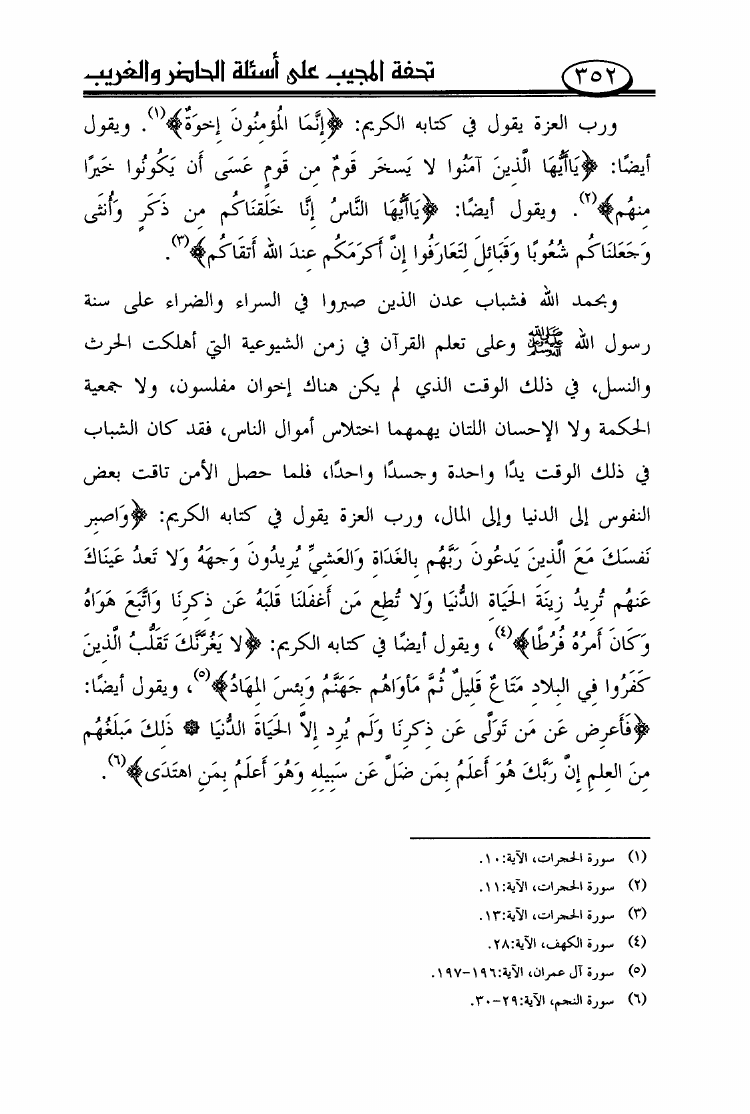 ٣٥٢ تحفة المجيب على أسئلة الحاضر والغريب
ورب العزة يقول في كتابه الكريم: ﴿إِنَّمَا الْمُؤمِنُونَ إِخوَةٌ﴾(١). ويقول
أيضًا: ﴿يَاأَيُّهَا الَّذِينَ آمَنُوا لا يَسخَر قَومٌ مِن قَومٍ عَسَى أَن يَكُونُوا خَيرًا
مِنهُم﴾(٢). ويقول أيضًا: ﴿يَاأَيُّهَا النَّاسُ إِنَّا خَلَقنَاكُم مِن ذَكَرٍ وَأُنثَى
وَجَعَلنَاكُم شُعُوبًا وَقَبَائِلَ لِتَعَارَفُوا إِنَّ أَكرَمَكُم عِندَ الله أَتقَاكُم﴾(٣).
وبحمد الله فشباب عدن الذين صبروا في السراء والضراء على سنة
رسول الله ﷺ وعلى تعلم القرآن في زمن الشيوعية التي أهلكت الحرث
والنسل، في ذلك الوقت الذي لم يكن هناك إخوان مفلسون، ولا جمعية
الحكمة ولا الإحسان اللتان يهمهما اختلاس أموال الناس، فقد كان الشباب
في ذلك الوقت يدًا واحدة وجسدًا واحدًا، فلما حصل الأمن تاقت بعض
النفوس إلى الدنيا وإلى المال، ورب العزة يقول في كتابه الكريم: ﴿وَاصبِر
نَفسَكَ مَعَ الَّذِينَ يَدعُونَ رَبَّهُم بِالغَدَاةِ وَالعَشِيِّ يُرِيدُونَ وَجهَهُ وَلا تَعدُ عَينَاكَ
عَنهُم تُرِيدُ زِينَةَ الحَيَاةِ الدُّنيَا وَلا تُطِع مَن أَغفَلنَا قَلبَهُ عَن ذِكرِنَا وَاتَّبَعَ هَوَاهُ
وَكَانَ أَمرُهُ فُرُطًا﴾(٤)، ويقول أيضًا في كتابه الكريم: ﴿لا يَغُرَّنَّكَ تَقَلُّبُ الَّذِينَ
كَفَرُوا فِي البِلادِ مَتَاعٌ قَلِيلٌ ثُمَّ مَأوَاهُم جَهَنَّمُ وَبِئسَ المِهَادُ﴾(٥)، ويقول أيضًا:
﴿فَأَعرِض عَن مَن تَوَلَّى عَن ذِكرِنَا وَلَم يُرِد إِلاَّ الحَيَاةَ الدُّنيَا * ذَلِكَ مَبلَغُهُم
مِنَ العِلمِ إِنَّ رَبَّكَ هُوَ أَعلَمُ بِمَن ضَلَّ عَن سَبِيلِهِ وَهُوَ أَعلَمُ بِمَنِ اهتَدَى﴾(٦).
(١) سورة الحجرات، الآية:١٠.
(٢) سورة الحجرات، الآية:١١.
(٣) سورة الحجرات، الآية:١٣.
(٤) سورة الكهف، الآية:٢٨.
(٥) سورة آل عمران، الآية:١٩٦-١٩٧.
(٦) سورة النجم، الآية:٢٩-٣٠.